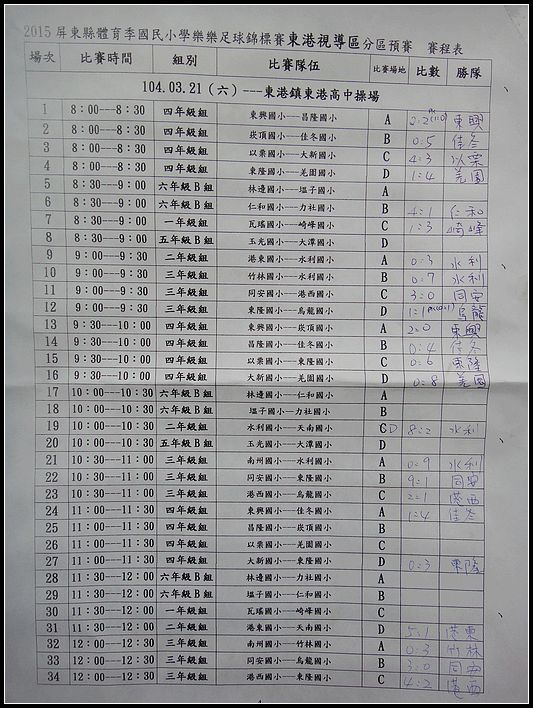 2015 屏東縣體育季國民小學樂樂足球錦標賽東港視導區分區預賽 賽程表
場次 比賽時間 組別 比賽隊伍 比賽場地 比數 勝隊
104.03.21(六)---東港鎮東港高中操場
1 8:00---8:30 四年級組 東興國小---昌隆國小 A 2:2 東興
2 8:00---8:30 四年級組 崁頂國小---佳冬國小 B 0:5 佳冬
3 8:00---8:30 四年級組 以栗國小---大新國小 C 4:3 以栗
4 8:00---8:30 四年級組 東隆國小---羌園國小 D 1:4 羌園
5 8:30---9:00 六年級B組 林邊國小---塭子國小 A
6 8:30---9:00 六年級B組 仁和國小---力社國小 B 4:1 仁和
7 8:30---9:00 一年級組 瓦瑤國小---崎峰國小 C 1:3 崎峰
8 8:30---9:00 五年級B組 玉光國小---大潭國小 D
9 9:00---9:30 二年級組 港東國小---水利國小 A 0:3 水利
10 9:00---9:30 三年級組 竹林國小---水利國小 B 0:7 水利
11 9:00---9:30 三年級組 同安國小---港西國小 C 3:0 同安
12 9:00---9:30 三年級組 東隆國小---烏龍國小 D 1:1 烏龍
13 9:30---10:00 四年級組 東興國小---崁頂國小 A 2:0 東興
14 9:30---10:00 四年級組 昌隆國小---佳冬國小 B 0:4 佳冬
15 9:30---10:00 四年級組 以栗國小---東隆國小 C 0:6 東隆
16 9:30---10:00 四年級組 大新國小---羌園國小 D 0:8 羌園
17 10:00---10:30 六年級B組 林邊國小---仁和國小 A
18 10:00---10:30 六年級B組 塭子國小---力社國小 B
19 10:00---10:30 二年級組 水利國小---天南國小 CD 8:2 水利
20 10:00---10:30 五年級B組 玉光國小---大潭國小 D
21 10:30---11:00 三年級組 南州國小---水利國小 A 0:9 水利
22 10:30---11:00 三年級組 同安國小---東隆國小 B 9:1 同安
23 10:30---11:00 三年級組 港西國小---烏龍國小 C 2:1 港西
24 11:00---11:30 四年級組 東興國小---佳冬國小 A 1:4 佳冬
25 11:00---11:30 四年級組 昌隆國小---崁頂國小 B
26 11:00---11:30 四年級組 以栗國小---羌園國小 C
27 11:00---11:30 四年級組 大新國小---東隆國小 D 0:3 東隆
28 11:30---12:00 六年級B組 林邊國小---力社國小 A
29 11:30---12:00 六年級B組 塭子國小---仁和國小 B
30 11:30---12:00 一年級組 瓦瑤國小---崎峰國小 C
31 11:30---12:00 二年級組 港東國小---天南國小 D 5:1 港東
32 12:00---12:30 三年級組 南州國小---竹林國小 A 0:3 竹林
33 12:00---12:30 三年級組 同安國小---烏龍國小 B 3:0 同安
34 12:00---12:30 三年級組 港西國小---東隆國小 C 4:2 港西